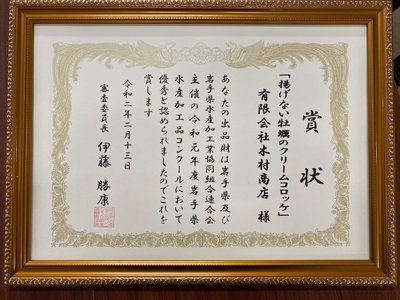 賞状
「揚げない牡蠣のクリームコロッケ」
有限会社木村商店 様
あなたの出品財は岩手県及び
岩手県水産加工業協同組合連合会
主催の令和元年度岩手県
水産加工品コンクールにおいて
優秀と認められましたのでこれを
賞します
令和二年二月十三日
審査委員長 伊藤 勝康